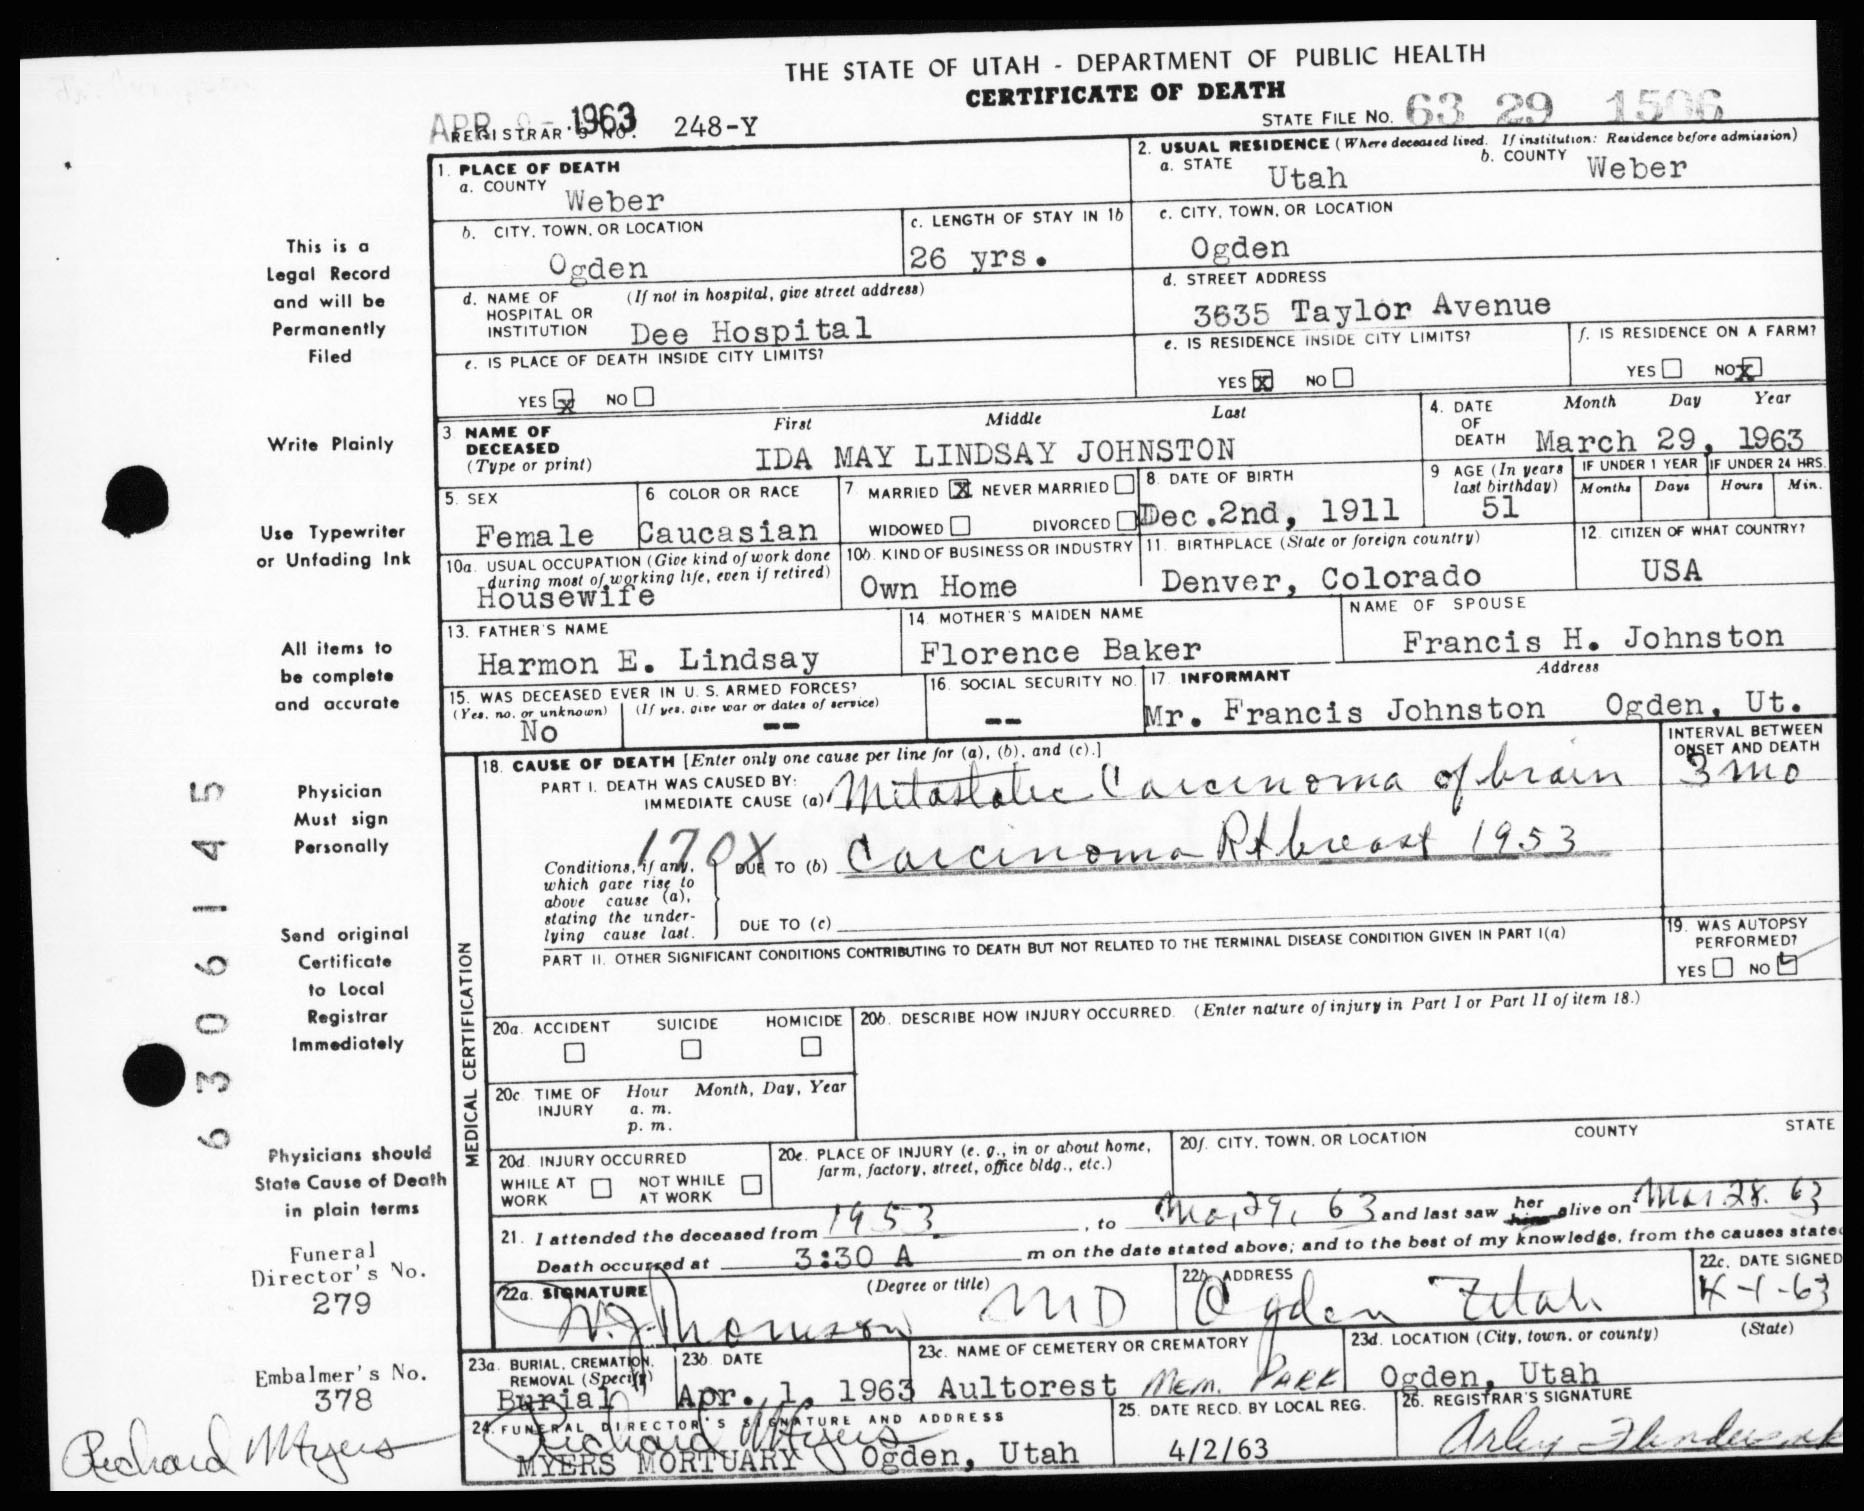 THE STATE OF UTAH - DEPARTMENT OF PUBLIC HEALTH
CERTIFICATE OF DEATH
APR 1963
REGISTRAR'S NO. 248-Y
STATE FILE NO. 63 29 1506
1. PLACE OF DEATH
a. COUNTY Weber
2. USUAL RESIDENCE (Where deceased lived. If institution: Residence before admission)
a. STATE Utah b. COUNTY Weber
b. CITY, TOWN, OR LOCATION Ogden
c. LENGTH OF STAY IN 1b 26 yrs.
c. CITY, TOWN, OR LOCATION Ogden
d. NAME OF HOSPITAL OR INSTITUTION (If not in hospital, give street address) Dee Hospital
d. STREET ADDRESS 3635 Taylor Avenue
e. IS PLACE OF DEATH INSIDE CITY LIMITS?
YES X NO
e. IS RESIDENCE INSIDE CITY LIMITS?
YES X NO
f. IS RESIDENCE ON A FARM?
YES NO X
3 NAME OF DECEASED (Type or print)
First Middle Last
IDA MAY LINDSAY JOHNSTON
4. DATE OF DEATH Month Day Year
March 29, 1963
5. SEX Female
6 COLOR OR RACE Caucasian
7 MARRIED X NEVER MARRIED
WIDOWED DIVORCED
8. DATE OF BIRTH Dec.2nd, 1911
9 AGE (In years last birthday) 51
IF UNDER 1 YEAR Months Days
IF UNDER 24 HRS. Hours Min.
10a. USUAL OCCUPATION (Give kind of work done during most of working life, even if retired) Housewife
10b. KIND OF BUSINESS OR INDUSTRY Own Home
11. BIRTHPLACE (State or foreign country) Denver, Colorado
12. CITIZEN OF WHAT COUNTRY? USA
13. FATHER'S NAME Harmon E. Lindsay
14. MOTHER'S MAIDEN NAME Florence Baker
NAME OF SPOUSE Francis H. Johnston
15. WAS DECEASED EVER IN U. S. ARMED FORCES?
(Yes, no, or unknown) No (If yes, give war or dates of service) --
16. SOCIAL SECURITY NO. --
17. INFORMANT Address
Mr. Francis Johnston Ogden, Ut.
MEDICAL CERTIFICATION
18. CAUSE OF DEATH [Enter only one cause per line for (a), (b), and (c).]
INTERVAL BETWEEN ONSET AND DEATH
PART I. DEATH WAS CAUSED BY:
IMMEDIATE CAUSE (a) Mitastatic Carcinoma of brain 3 mo
170X
Conditions, if any, which gave rise to above cause (a), stating the underlying cause last.
DUE TO (b) Carcinoma Rt breast 1953
DUE TO (c)
PART II. OTHER SIGNIFICANT CONDITIONS CONTRIBUTING TO DEATH BUT NOT RELATED TO THE TERMINAL DISEASE CONDITION GIVEN IN PART I(a)
19. WAS AUTOPSY PERFORMED?
YES NO ✓
20a. ACCIDENT SUICIDE HOMICIDE
20b. DESCRIBE HOW INJURY OCCURRED. (Enter nature of injury in Part I or Part II of item 18.)
20c. TIME OF INJURY Hour Month, Day, Year
a. m.
p. m.
20d. INJURY OCCURRED
WHILE AT WORK NOT WHILE AT WORK
20e. PLACE OF INJURY (e. g., in or about home, farm, factory, street, office bldg., etc.)
20f. CITY, TOWN, OR LOCATION COUNTY STATE
21. I attended the deceased from 1953, to Mar 29, 63 and last saw her him alive on Mar 28. 63
Death occurred at 3:30 A m on the date stated above; and to the best of my knowledge, from the causes stated
22a. SIGNATURE (Degree or title)
W.J. Thomson MD
22b. ADDRESS Ogden Utah
22c. DATE SIGNED 4-1-63
23a. BURIAL, CREMATION, REMOVAL (Specify) Burial
23b. DATE Apr. 1, 1963
23c. NAME OF CEMETERY OR CREMATORY Aultorest Mem. Park
23d. LOCATION (City, town, or county) (State)
Ogden, Utah
24. FUNERAL DIRECTOR'S SIGNATURE AND ADDRESS
Richard Myers
MYERS MORTUARY Ogden, Utah
25. DATE RECD. BY LOCAL REG. 4/2/63
26. REGISTRAR'S SIGNATURE
This is a
Legal Record
and will be
Permanently
Filed
Write Plainly
Use Typewriter
or Unfading Ink
All items to
be complete
and accurate
Physician
Must sign
Personally
Send original
Certificate
to Local
Registrar
Immediately
Physicians should
State Cause of Death
in plain terms
Funeral
Director's No.
279
Embalmer's No.
378
Richard Myers
63 06145